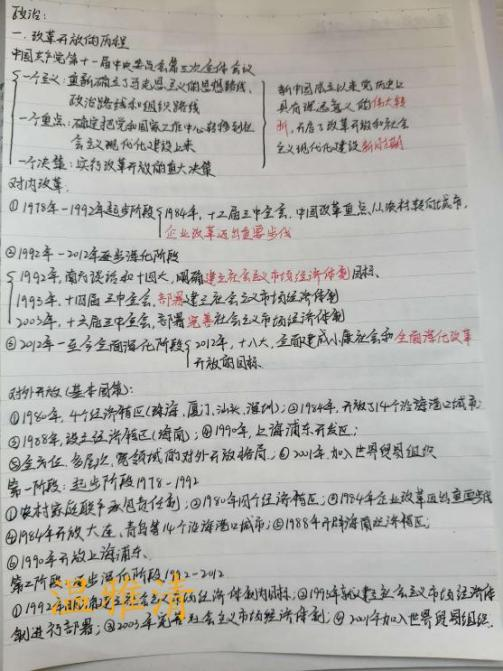 政治:
一.改革开放的历程
中国共产党第十一届中央委员会第三次全体会议
一个主义:重新确立了马克思主义的思想路线、
政治路线和组织路线
一个重点:确定把党和国家工作中心转移到社
会主义现代化建设上来
一个决策:实行改革开放的重大决策
新中国成立以来党历史上
具有深远意义的伟大转
折,开启了改革开放和社会
主义现代化建设新时期
对内改革:
①1978年-1992年起步阶段 1984年,十二届三中全会,中国改革重点从农村转向城市,
企业改革迈出重要步伐
②1992年-2012年逐步深化阶段
1992年,南方谈话和十四大,明确建立社会主义市场经济体制目标.
1993年,十四届三中全会,部署建立社会主义市场经济体制
2003年,十六届三中全会,部署完善社会主义市场经济体制
③2012年-至今全面深化阶段 2012年,十八大,全面建成小康社会和全面深化改革
开放的目标.
对外开放(基本国策):
①1980年,4个经济特区(珠海,厦门,汕头,深圳);②1984年,开放了14个沿海港口城市;
③1988年,设立经济特区(海南);④1990年,上海浦东开发区;
⑤全方位,多层次,宽领域的对外开放格局;⑥2001年,加入世界贸易组织
第一阶段:起步阶段1978-1992
①农村家庭联产承包责任制;②1980年四个经济特区;③1984年企业改革迈出重要步伐
④1984年开放大连、青岛等14个沿海港口城市;⑤1988年开辟海南经济特区;
⑥1990年开放上海浦东.
第二阶段:逐步深化阶段1992-2012
①1992年明确建立社会主义市场经济体制目标;②1993年就建立社会主义市场经济体
制进行部署;③2003年完善社会主义市场经济体制;④2001年加入世界贸易组织.
温雅清